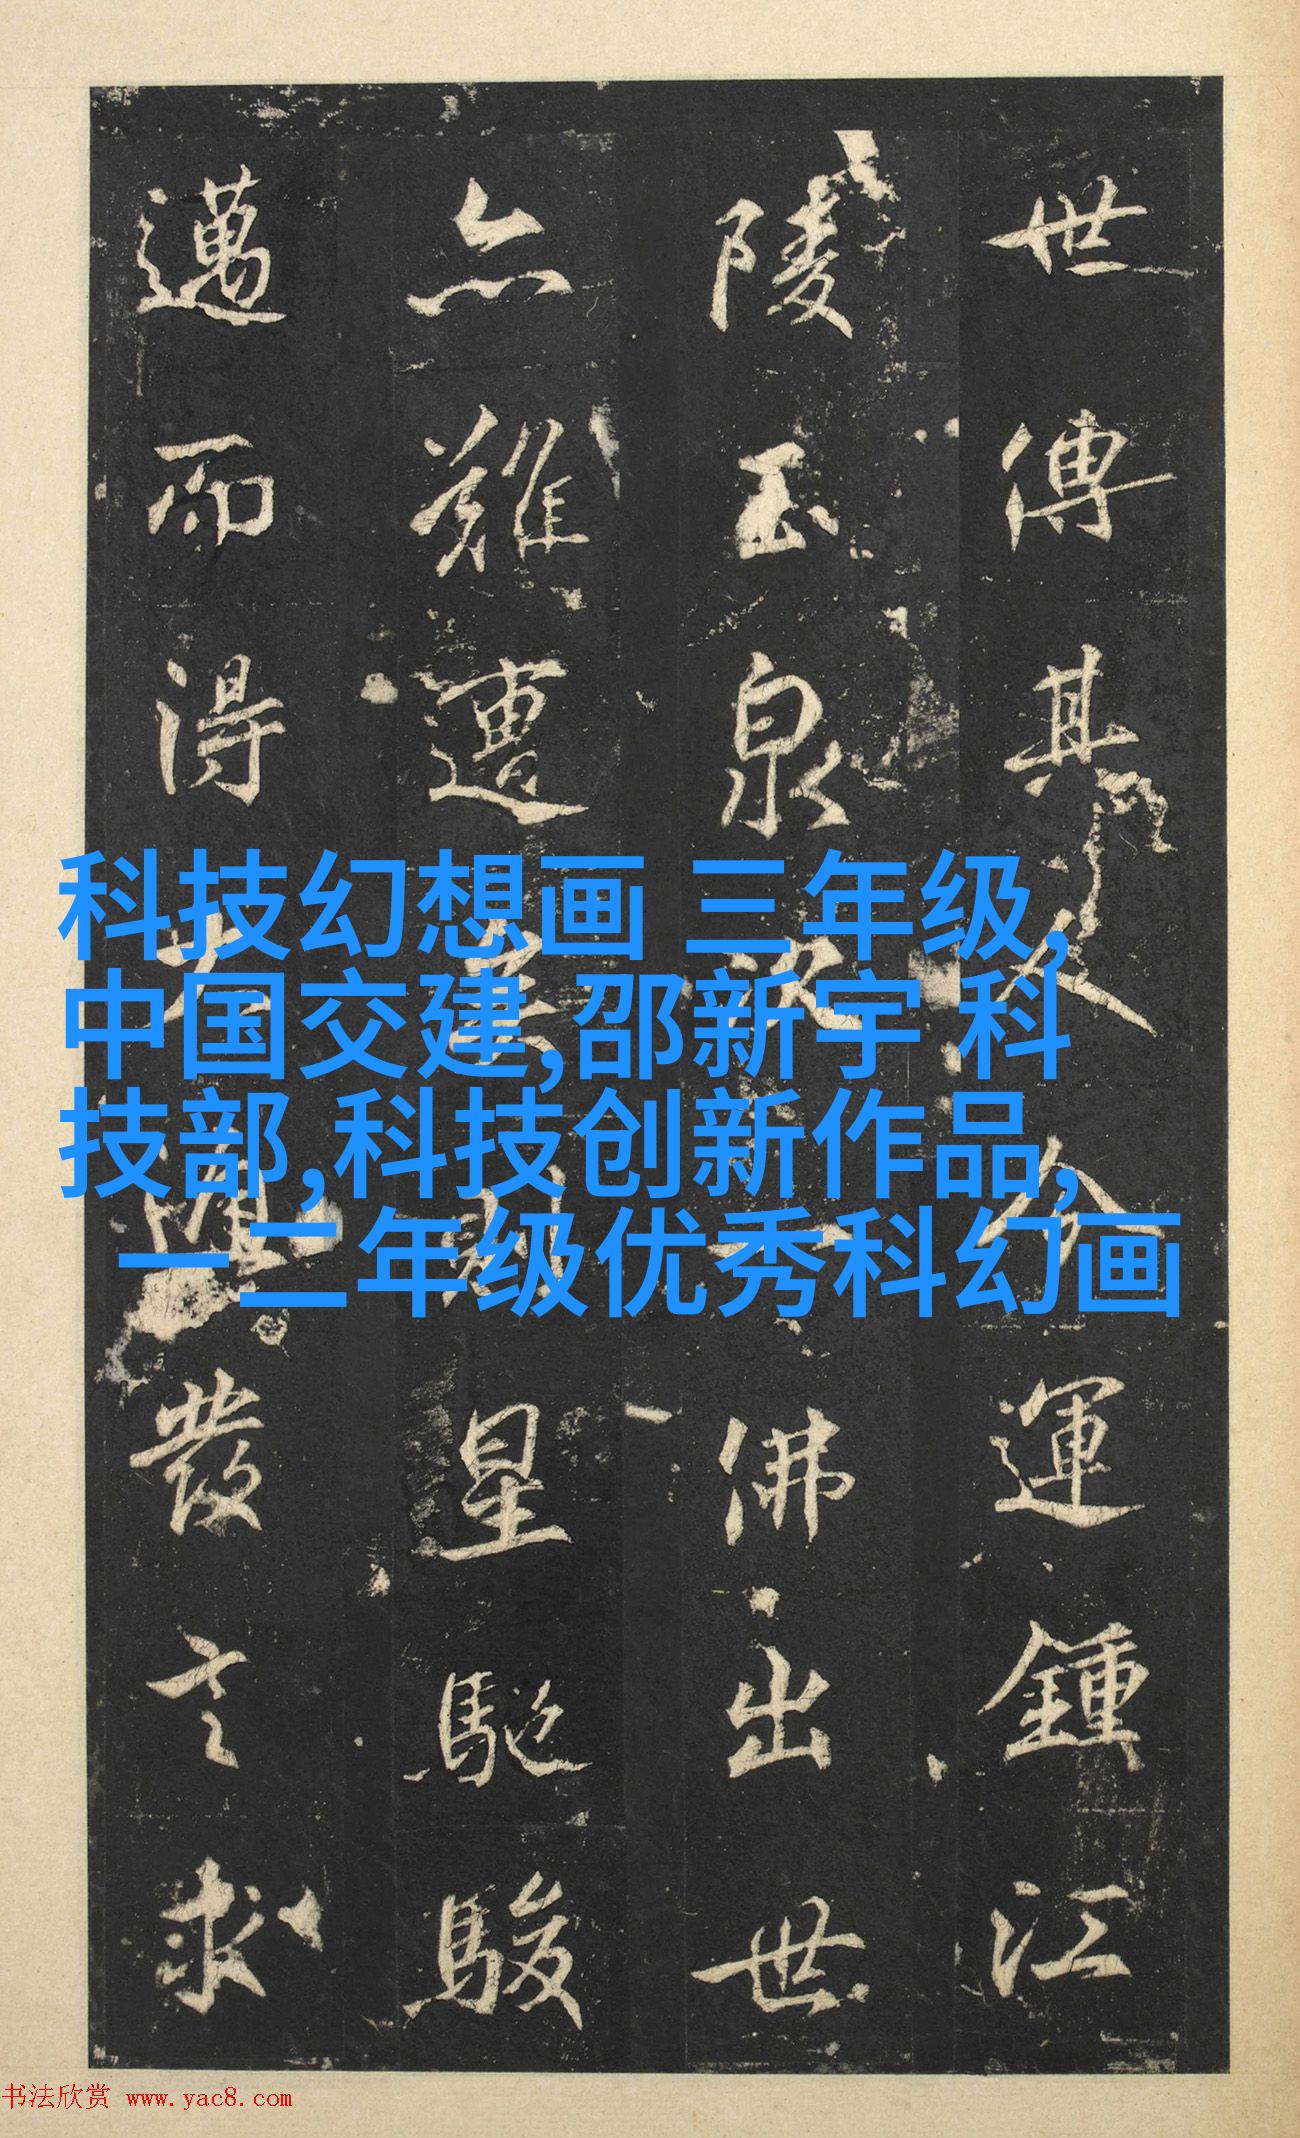 科技幻想画 三年级,
中国交建,邵新宇 科
技部,科技创新作品,
一二年级优秀科幻画
世傳其
運鍾江
陵玉泉
佛出世
亦難遭
星馳駿
邁而得
發言求
书法欣赏 www.yac8.com